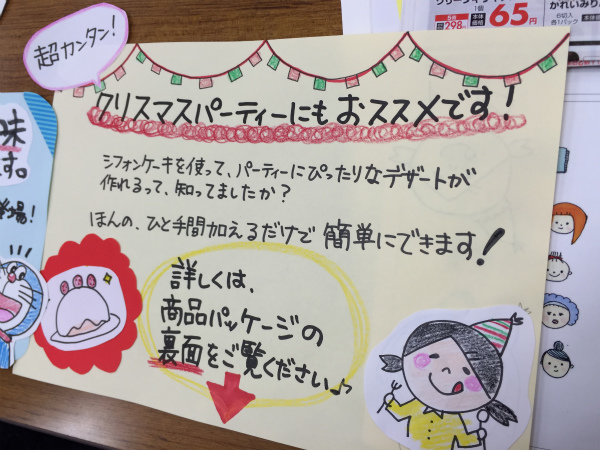 超カンタン!
クリスマスパーティーにもおススメです!
シフォンケーキを使って、パーティーにぴったりなデザートが
作れるって、知ってましたか?
ほんの、ひと手間加えるだけで簡単にできます!
詳しくは、
商品パッケージの
裏面をご覧ください♪
味
す。
登場!
1個
本体価格 65円
298
6切入
各1パック